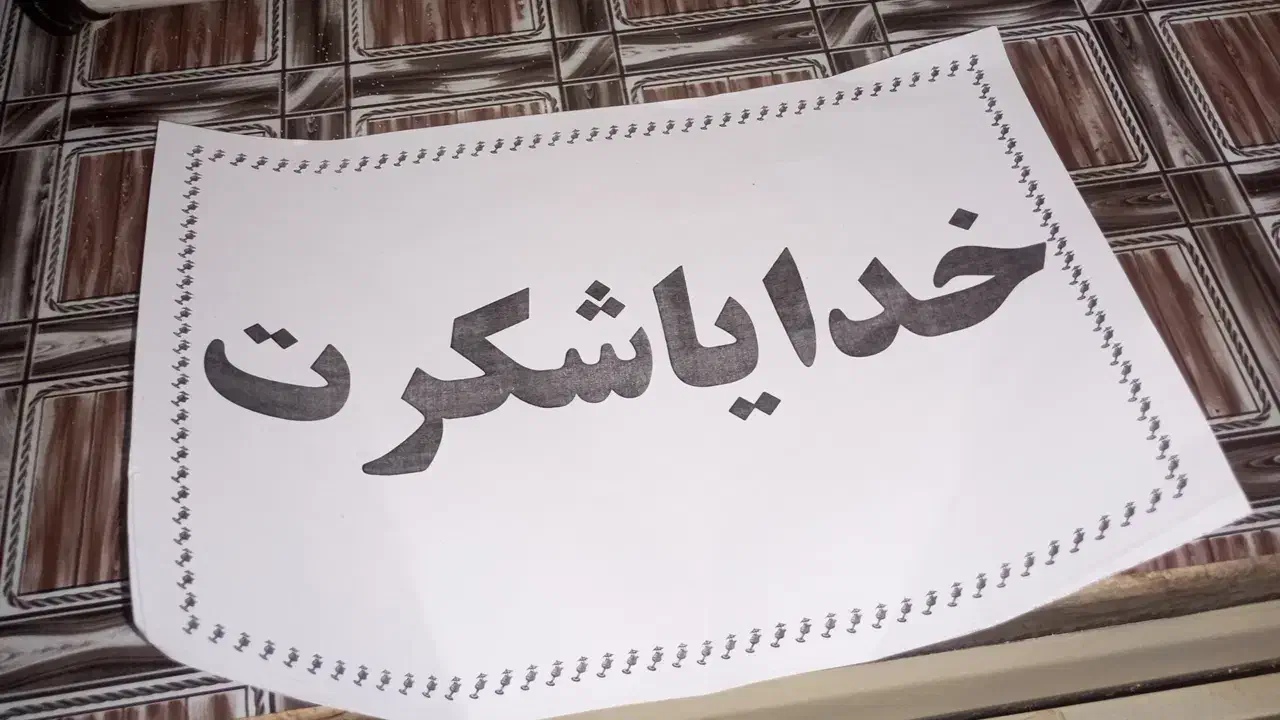 خدایاشکرت